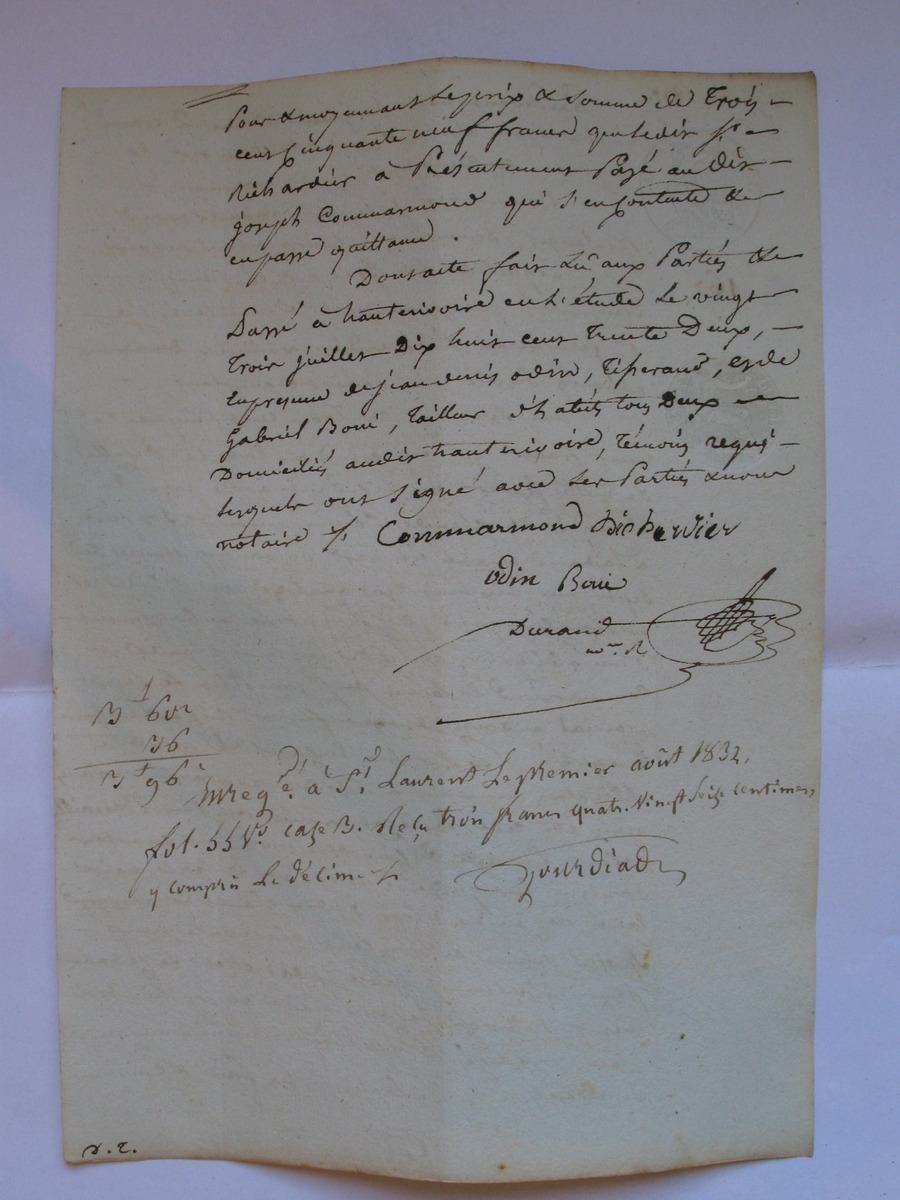 Pour & moyennant le prix & somme de Trois
cent Cinquante neuf francs que ledit Sr
Richardier à Présentement Payé audit
joseph Commarmond qui s'en Contente &
en passe quittance.
Dont acte fait Lû aux Parties &
Passé à hauterivoire en l'étude Le vingt
Trois juillet Dix huit cent Trente Deux,
En presence de jean denis odin, Tisserand, et de
Gabriel Boué, Tailleur d'habits tous Deux
Domiciliés audit hauterivoire, Témoins requis
lesquels ont Signé avec les Parties & nous
notaire /.
Commarmond Richardier
odin Boué
Durand
nre
3f 60c
36
3f 96c
Enregé. à St. Laurent Le premier août 1832,
fol. 55 Vo. case 3. Reçu trois francs quatre Vingt Seize Centimes,
y compris Le décime
Gourdiat
D. T.